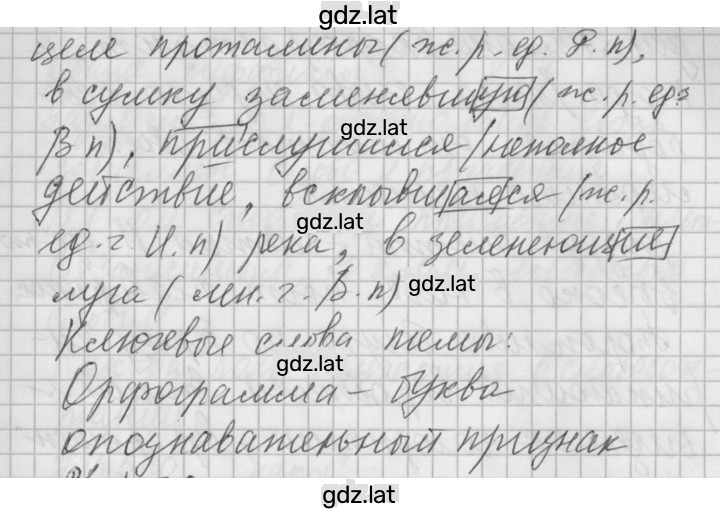 gdz.lat
целе проталины (ж. р. ед. Р. п),
в сумку заменявшую (ж. р. ед.
gdz.lat
В п), прислушился (неполное
действие, вскрывшаяся (ж. р.
gdz.lat
ед. г. И. п) река, в зеленеющие
луга (мн. г. В. п)
gdz.lat
Ключевые слова темы:
gdz.lat
Орфограмма – буква
опознавательный признак
gdz.lat